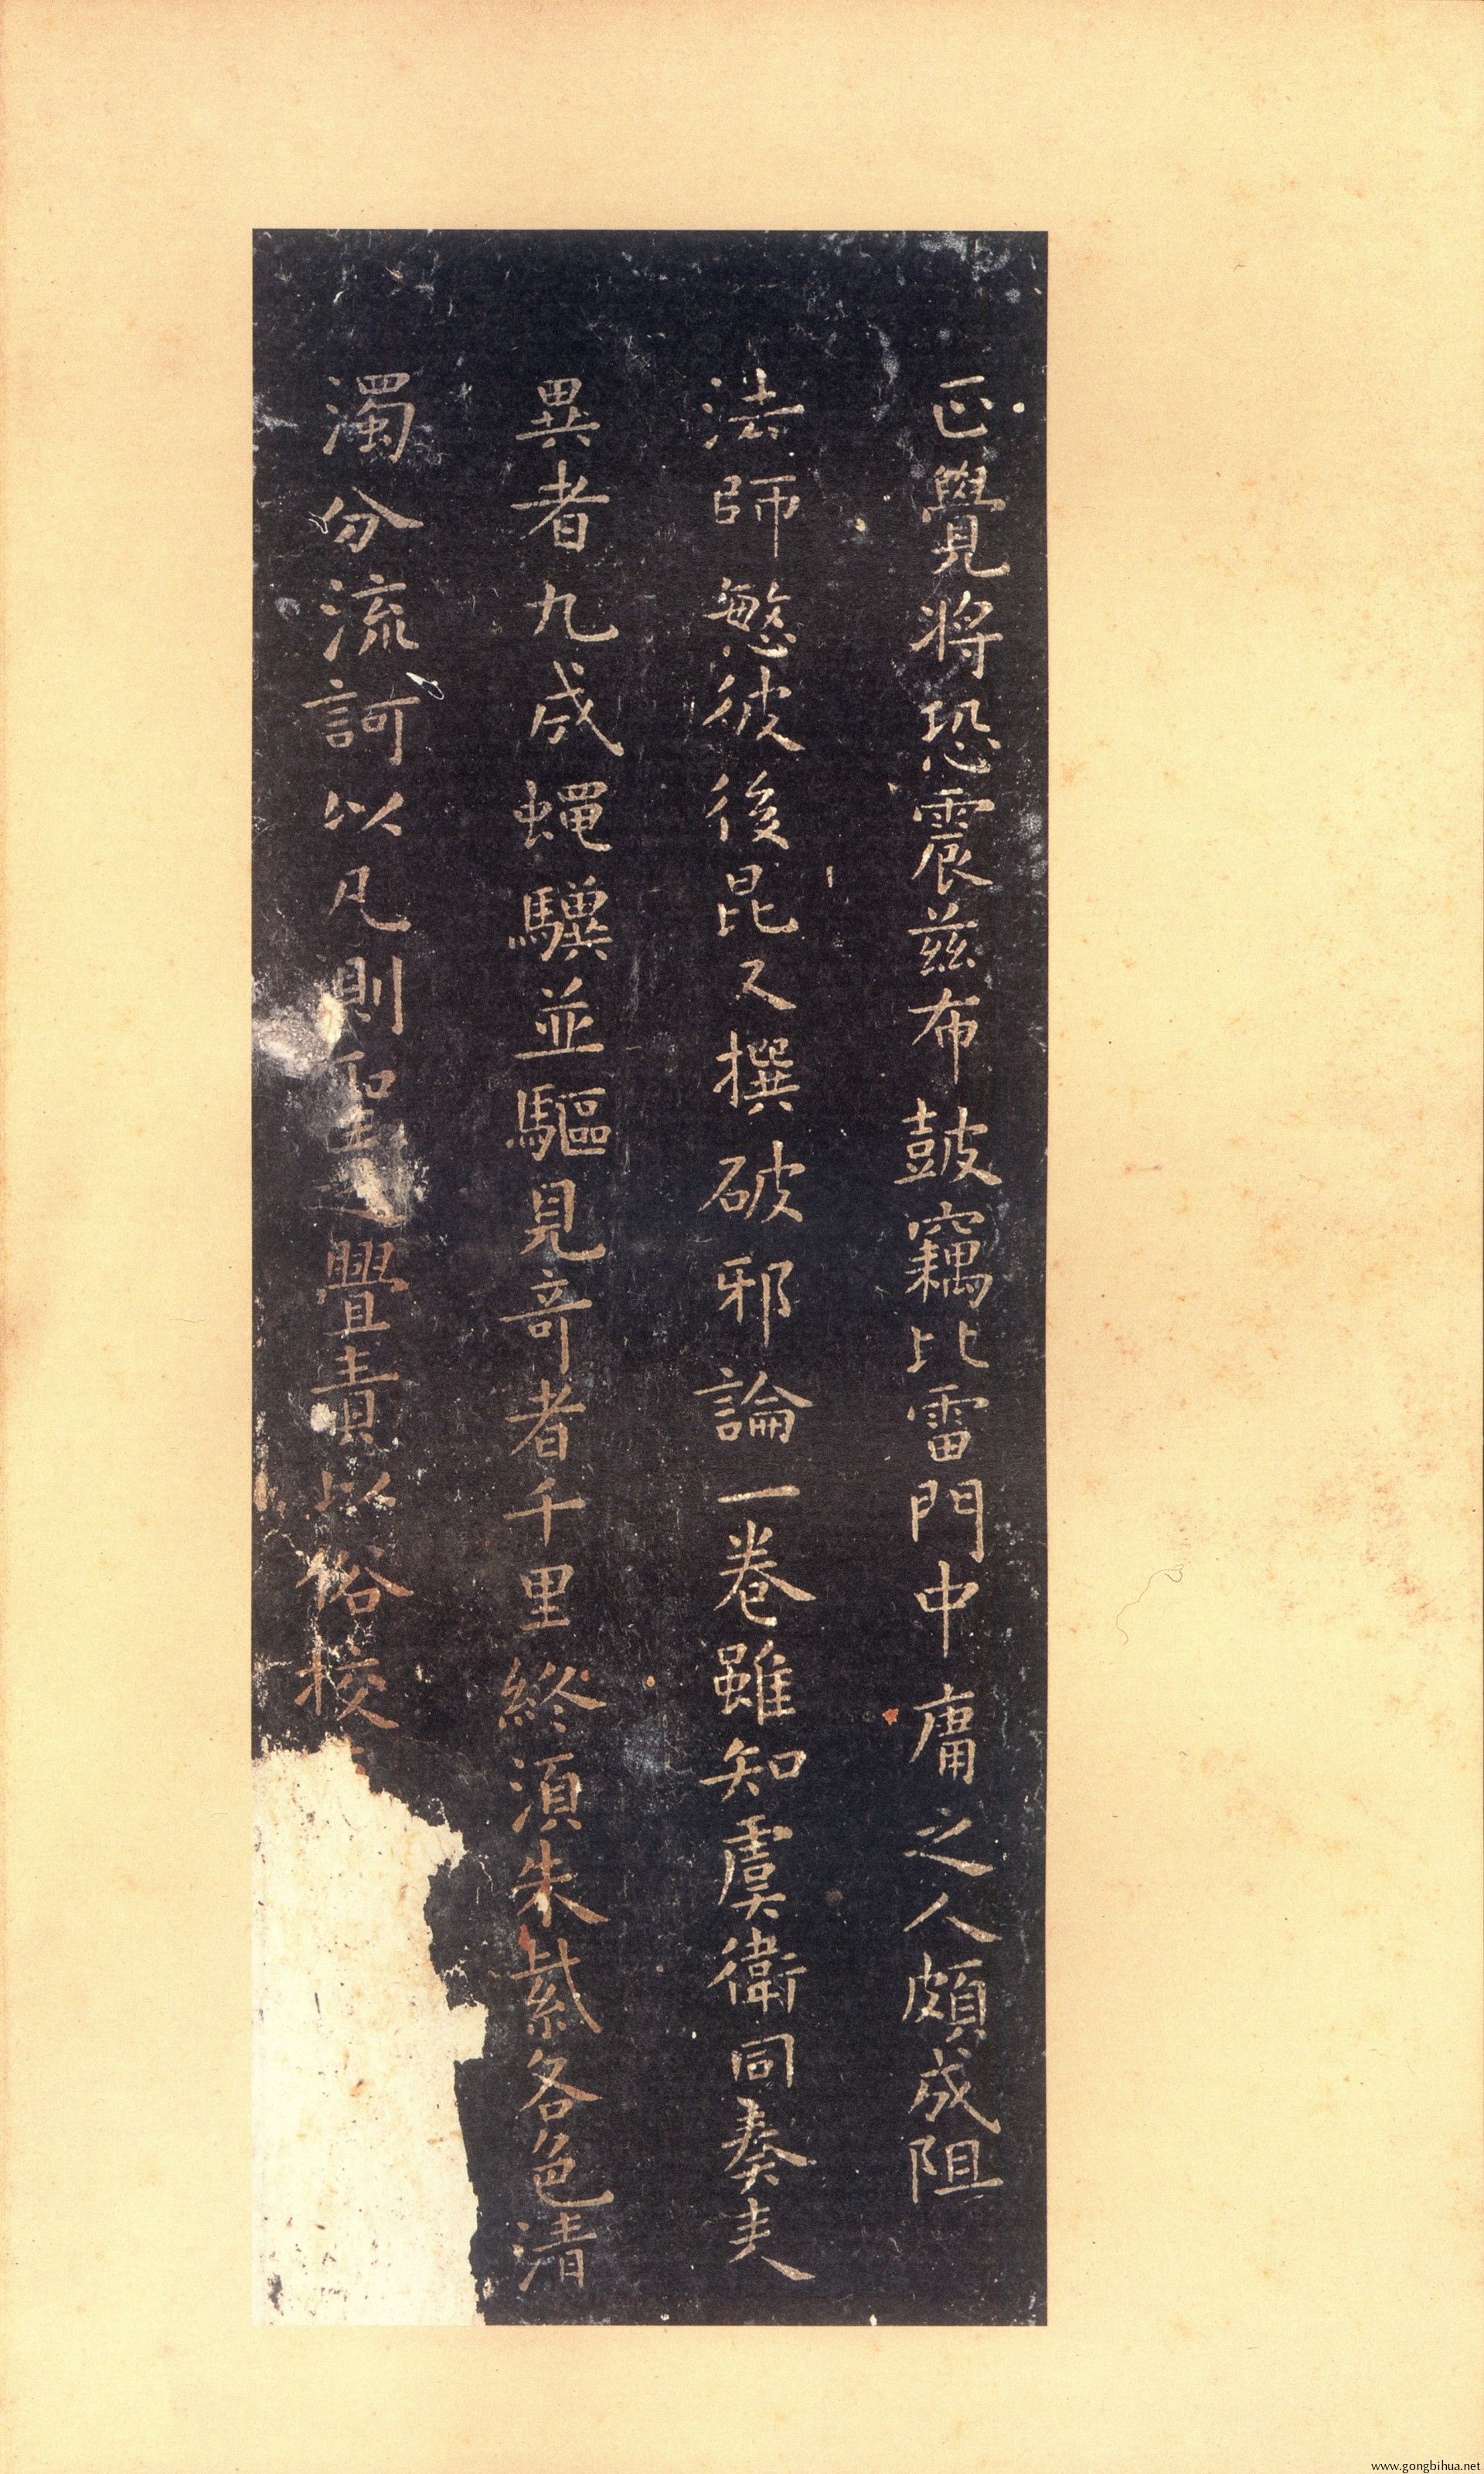 正覺將恐震茲布鼓竊比雷門中庸之人頗成阻
法師慜彼後昆又撰破邪論一卷雖知虞衛同奏表
異者九成蠅驥並驅見奇者千里終須朱紫各色清
濁分流訶以凡則聖之舋責以俗挍
www.gongbihua.net